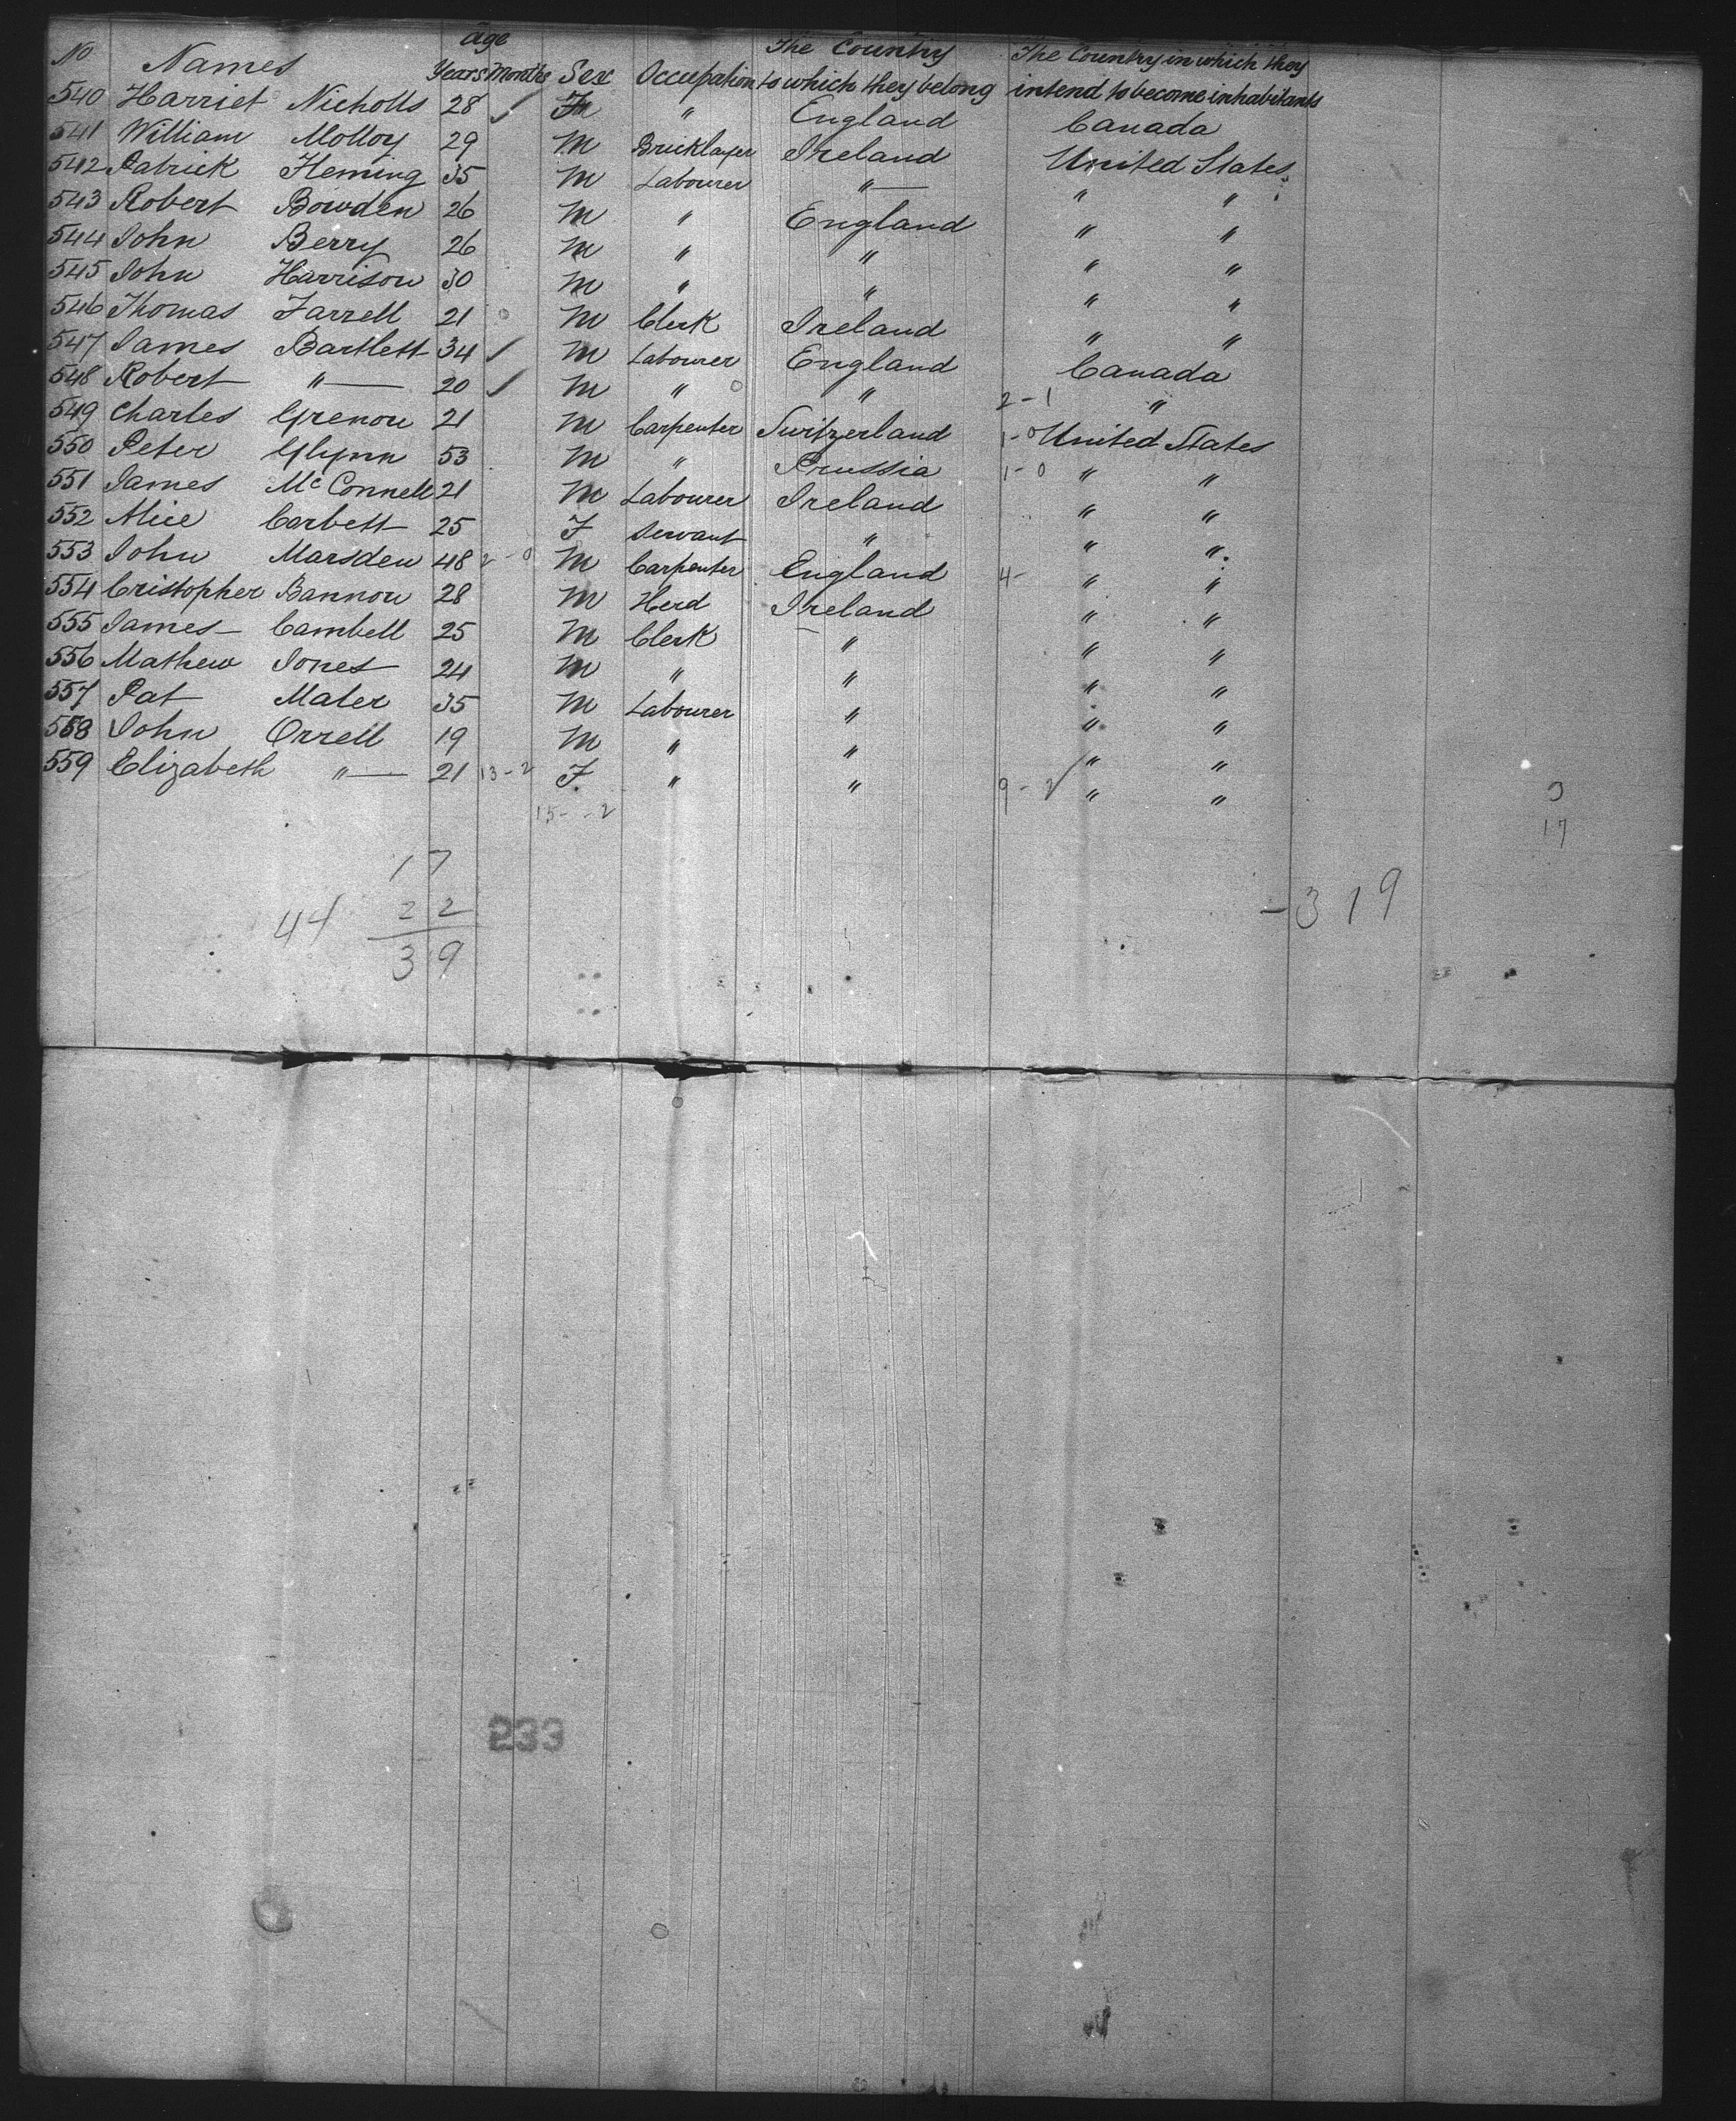 No Names Age Years Months Sex Occupation The Country to which they belong The Country in which they intend to become inhabitants
540 Harriet Nicholls 28 ✓ F " England Canada
541 William Molloy 29 M Bricklayer Ireland United States
542 Patrick Fleming 35 M Labourer " " "
543 Robert Bowden 26 M " England " "
544 John Berry 26 M " " " "
545 John Harrison 30 M " " " "
546 Thomas Farrell 21 M Clerk Ireland " "
547 James Bartlett 34 ✓ M Labourer England Canada
548 Robert " 20 ✓ M " " 2-1 "
549 Charles Grenon 21 M Carpenter Switzerland 1-0 United States
550 Peter Glynn 53 M " Prussia 1-0 " "
551 James McConnell 21 M Labourer Ireland " "
552 Alice Corbett 25 F Servant " " "
553 John Marsden 48 2-0 M Carpenter England 4- " "
554 Cristopher Bannon 28 M Herd Ireland " "
555 James Cambell 25 M Clerk " " "
556 Mathew Jones 24 M " " " "
557 Pat Mater 35 M Labourer " " "
558 John Orrell 19 M " " " "
559 Elizabeth " 21 13-2 F " " 9-2 " "
15--2
17
17
44 22
39
-319
233